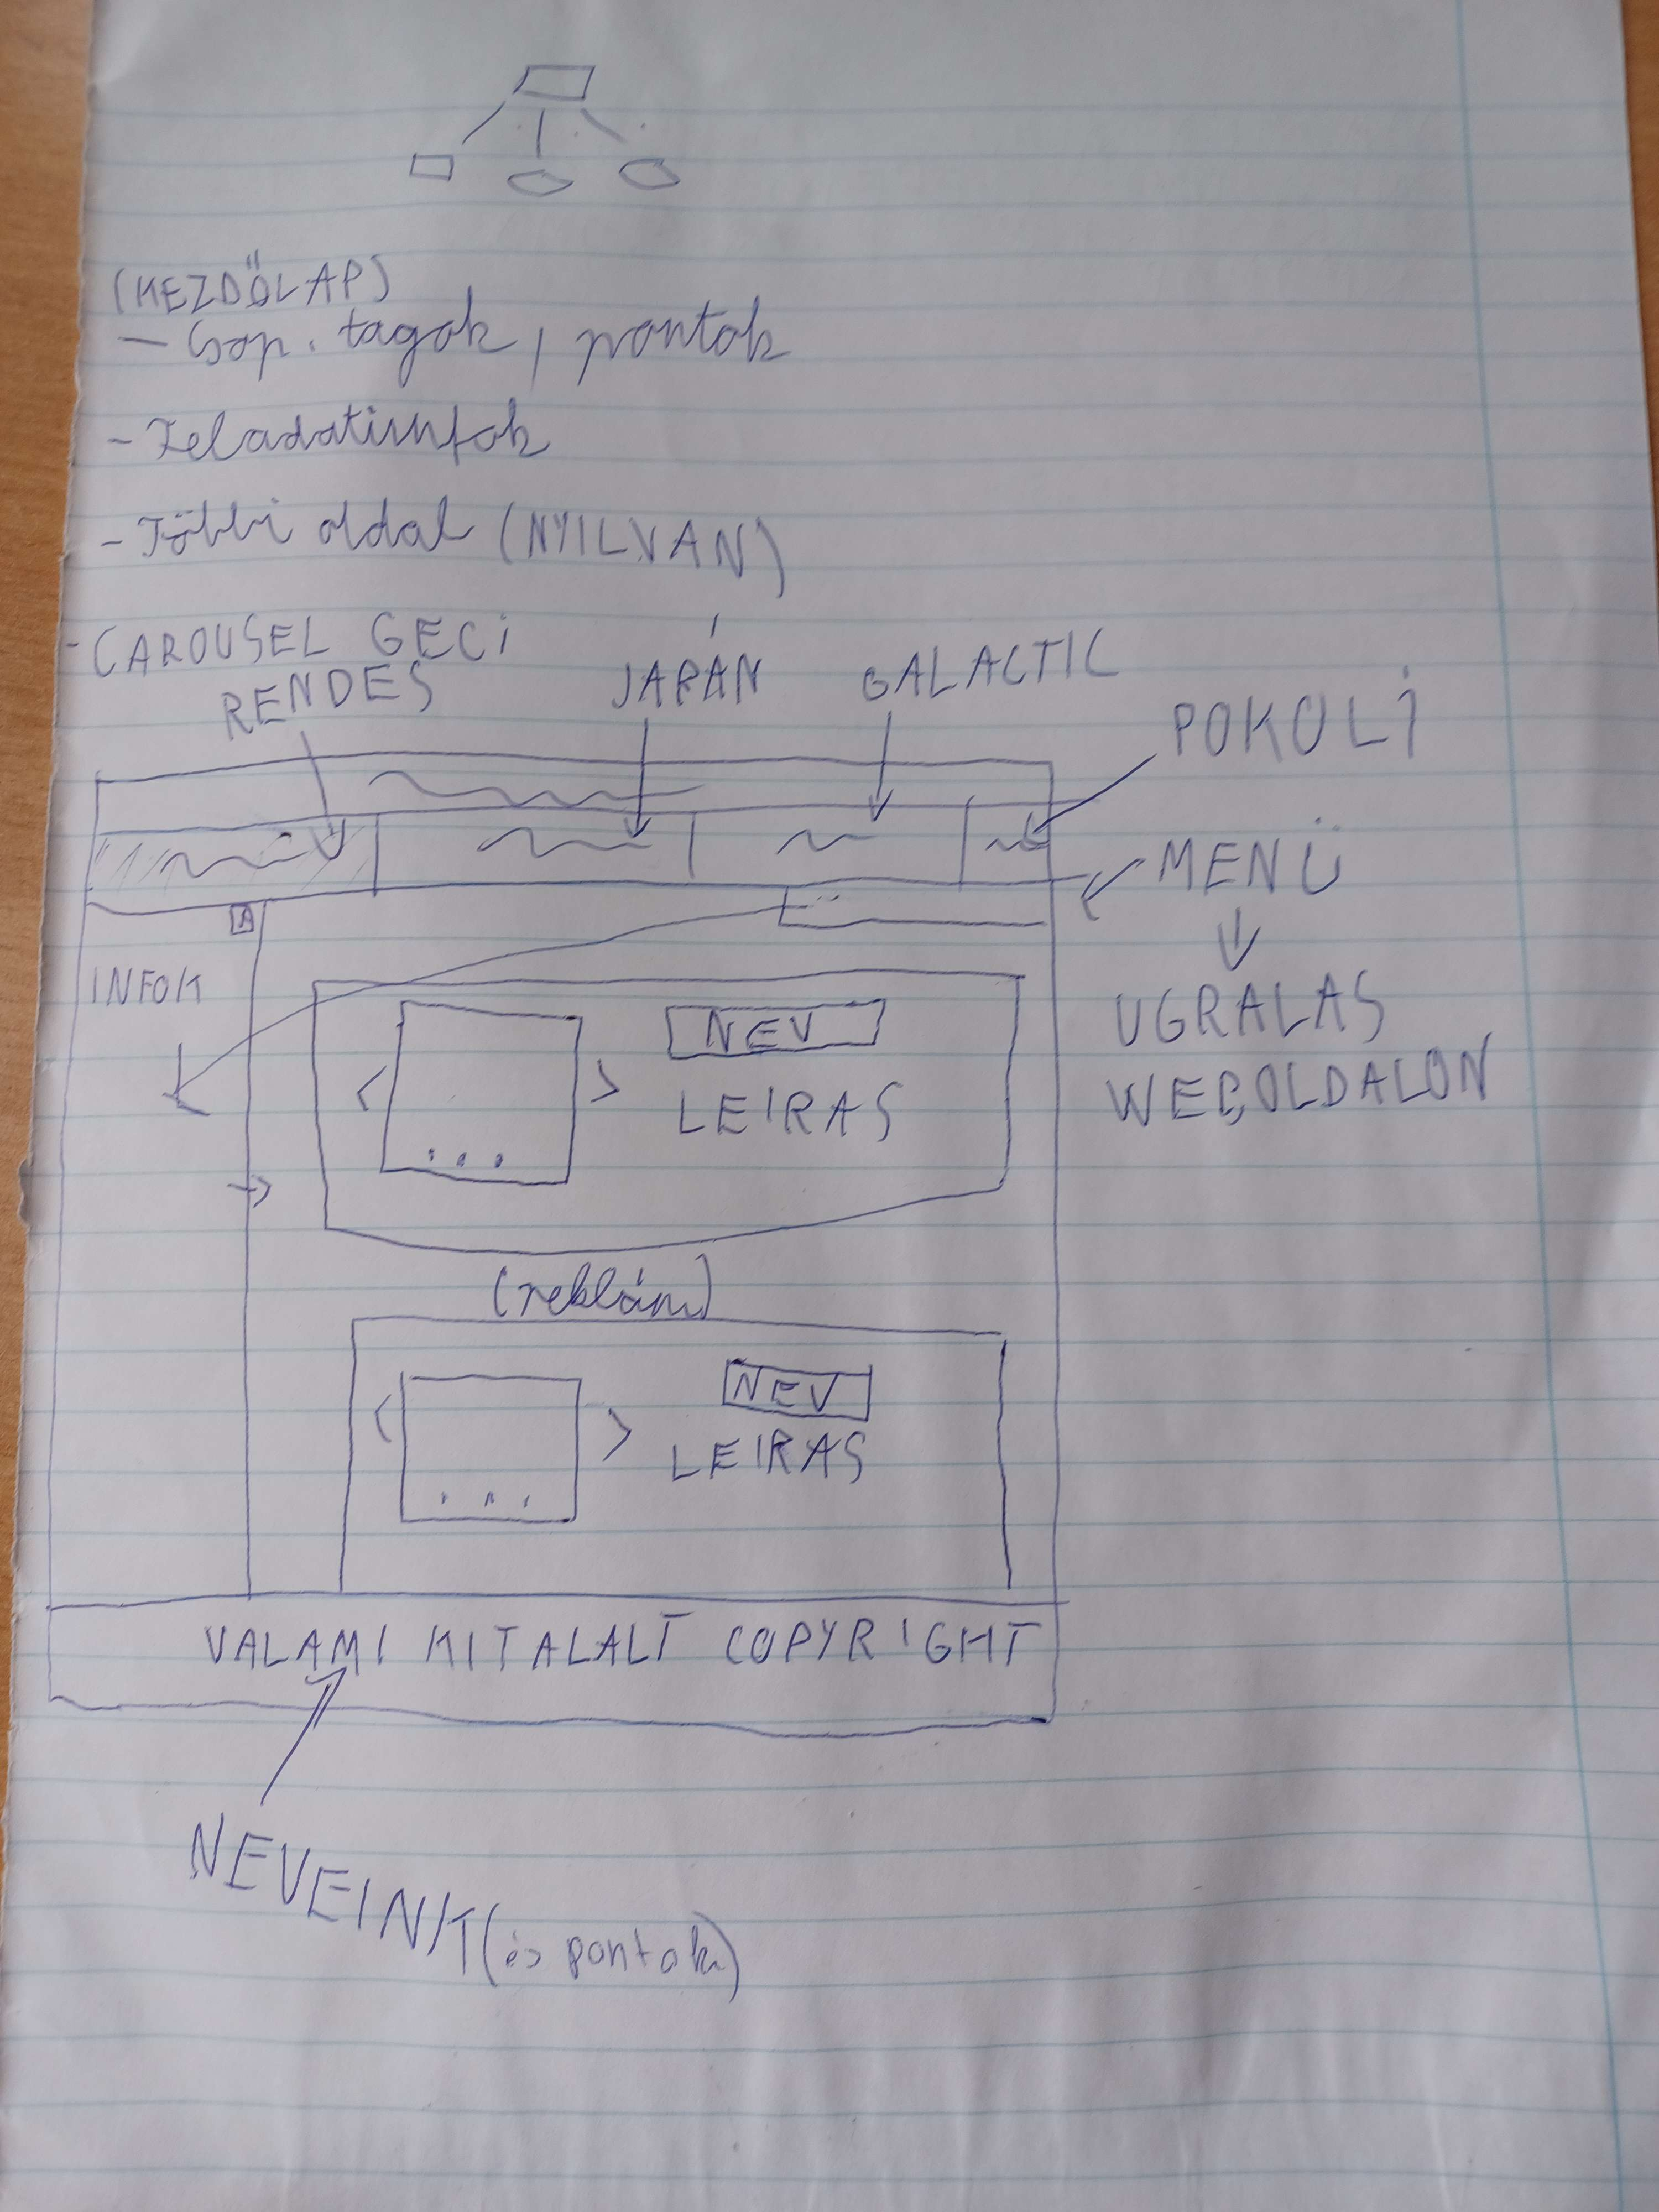 (KEZDŐLAP)
- Csop. tagok, pontok
- Feladatinfok
- Többi oldal (NYILVAN)
- CAROUSEL GECI
RENDES
JAPÁN
GALACTIC
POKOLI
MENÜ
A
INFOK
UGRALAS
WEBOLDALON
< NEV
> LEIRAS
...
(reklám)
< NEV
> LEIRAS
...
VALAMI KITALALT COPYRIGHT
NEVEINK (és pontok)